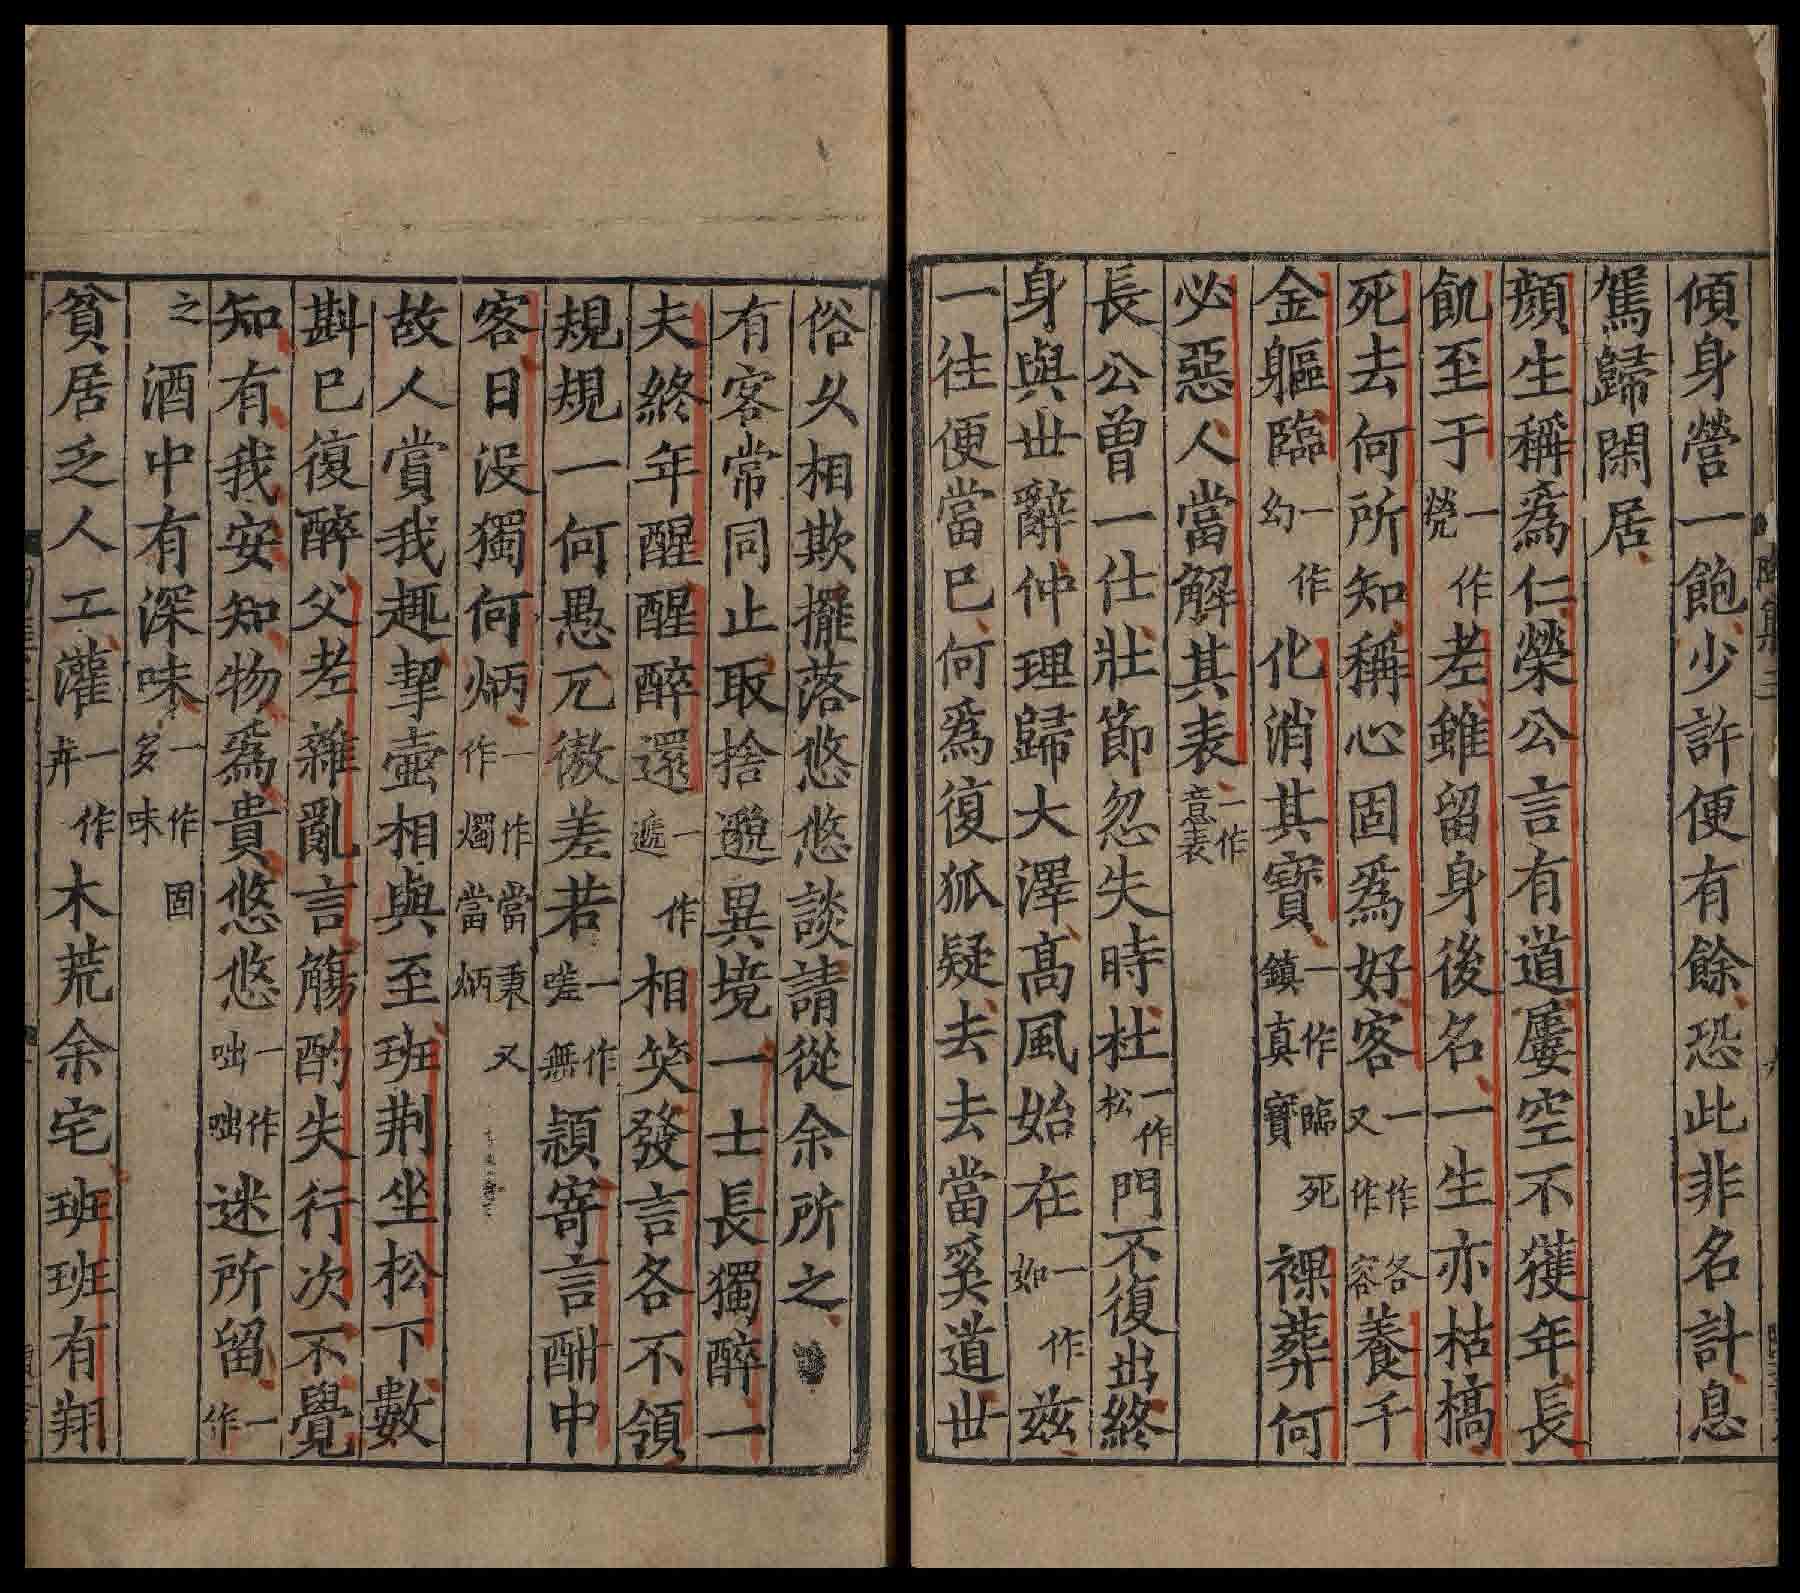 傾身營一飽少許便有餘恐此非名計息
駕歸閑居
顔生稱爲仁榮公言有道屢空不獲年長
飢至于一作㷀老雖留身後名一生亦枯槁
死去何所知稱心固爲好客一作各又作容養千
金軀臨一作幻化消其寶一作臨死鎮真寶裸葬何
必惡人當解其表一作意表
長公曾一仕壯節忽失時杜一作松門不復出終
身與世辭仲理歸大澤高風始在一作如兹
一往便當已何爲復狐疑去去當奚道世
俗久相欺擺落悠悠談請從余所之
有客常同止取捨邈異境一士長獨醉一
夫終年醒醒醉還一作遞相笑發言各不領
規規一何愚兀傲差若一作嗟無穎寄言酣中
客日没獨何炳一作當秉又作燭當炳
故人賞我趣挈壺相與至班荆坐松下數
斟已復醉父老雜亂言觴酌失行次不覺
知有我安知物爲貴悠悠一作咄咄迷所留一作
之酒中有深味一作固多味
貧居乏人工灌一作卉木荒余宅班班有翔